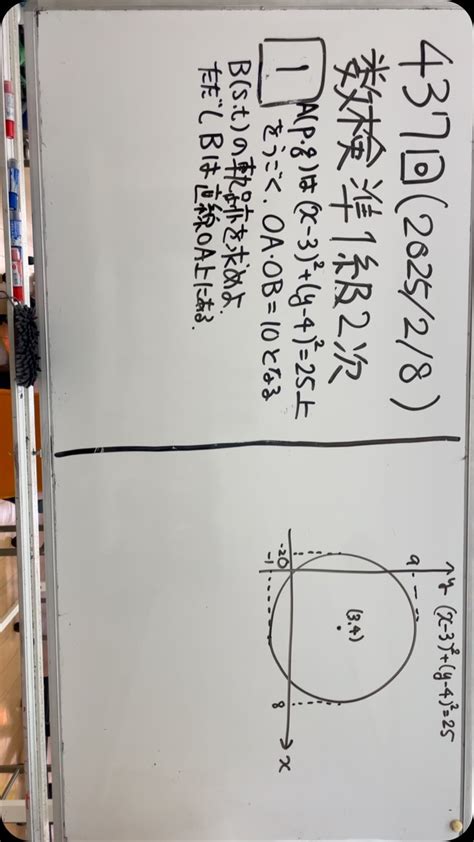 437回(2025/2/8)
数検準1級2次
1 A(p,q)は(x-3)²+(y-4)²=25上
をうごく、OA・OB=10となる
B(s,t)の軌跡を求めよ.
ただしBは直線OA上にある.
y (x-3)²+(y-4)²=25
9
(3,4)
-2 0 8 x
-1